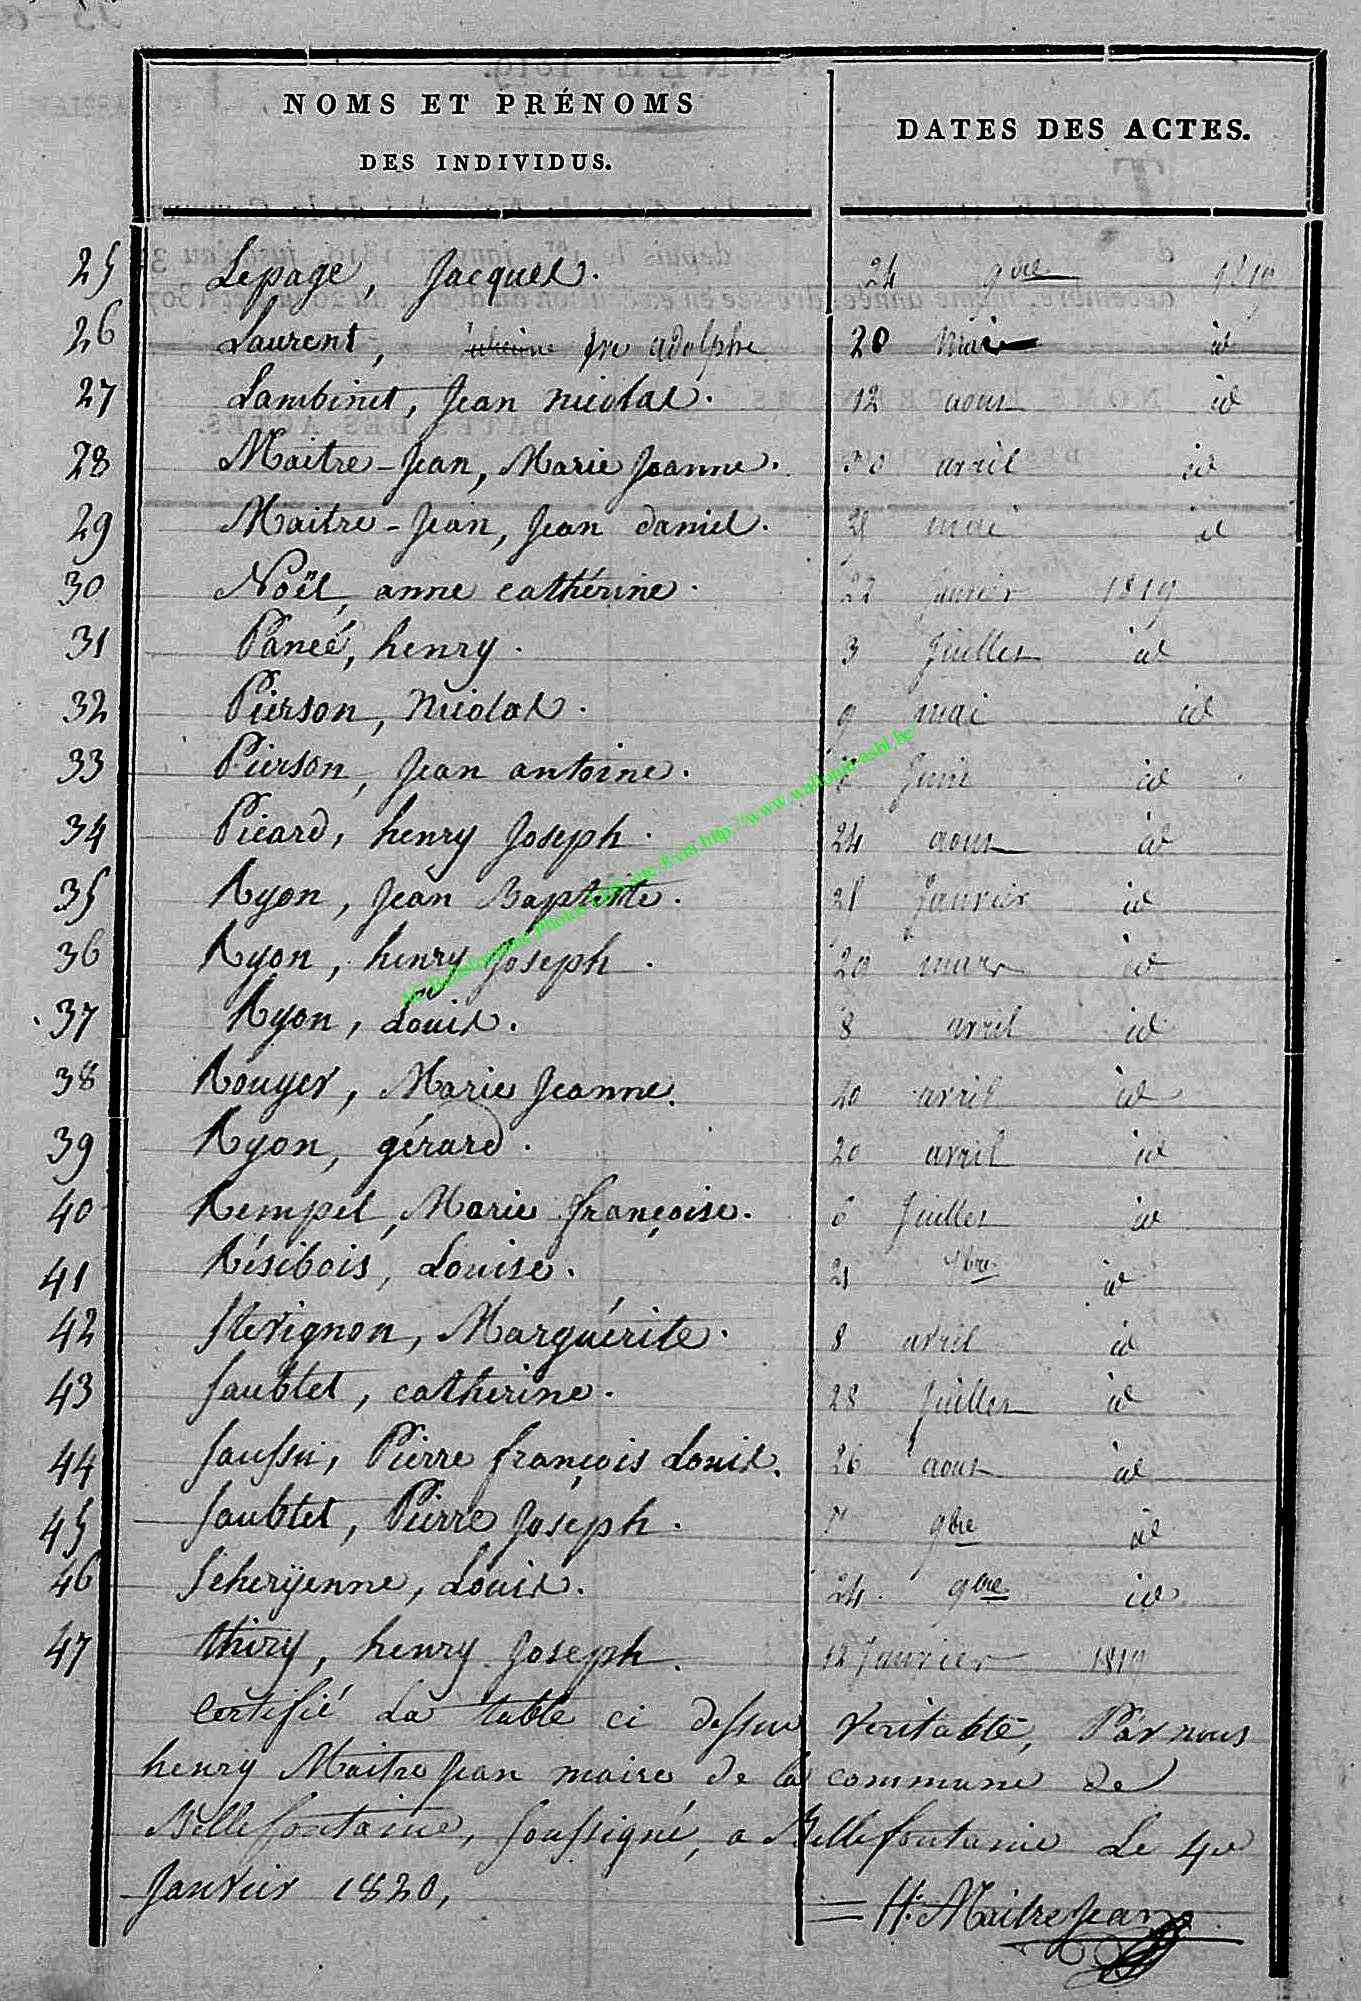 NOMS ET PRÉNOMS
DES INDIVIDUS.
DATES DES ACTES.
25 Lepage, Jacques. 24 9bre 1819
26 Laurent, jre adolphe 20 mai id
27 Lambinet, Jean nicolas. 12 aout id
28 Maitre-Jean, Marie Joanne. 30 avril id
29 Maitre-Jean, Jean daniel. 21 mai id
30 Noël, anne cathérine. 22 janvier 1819
31 Paneé, henry. 3 Juillet id
32 Pierson, nicolas. 9 mai id
33 Pierson, Jean antoine. Juin id
34 Picard, henry Joseph. 24 aout id
35 Ryon, Jean Baptiste. 21 Janvier id
36 Ryon, henry Joseph. 29 mars id
37 Ryon, Louis. 8 avril id
38 Rouyer, Marie Jeanne. 20 avril id
39 Ryon, gérard. 20 avril id
40 Rempel, Marie françoise. 6 Juillet id
41 Résibois, Louise. 21 id
42 Stevignon, Marguérite. 8 avril id
43 Saublet, catherine. 28 Juillet id
44 Saussu, Pierre françois Louis. 26 aout id
45 Saublet, Pierre Joseph. 7 9bre id
46 Scheryenne, Louis. 24 9bre id
47 thiry, henry Joseph. 12 Janvier 1819
Certifié La table ci dessus veritable, Par nous
henry Maitre Jean maire de la commune de
Bellefontaine, soussigné, a Bellefontaine Le 4e
Janvier 1820,
H: MaitreJean